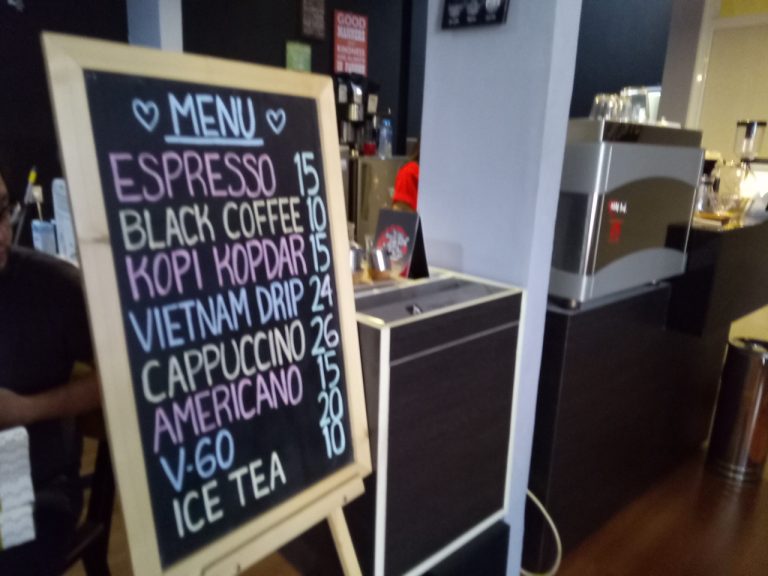 GOOD
MANNERS
MENU
ESPRESSO 15
BLACK COFFEE 10
KOPI KOPDAR 15
VIETNAM DRIP 24
CAPPUCCINO 26
AMERICANO 15
V-60 20
ICE TEA 10